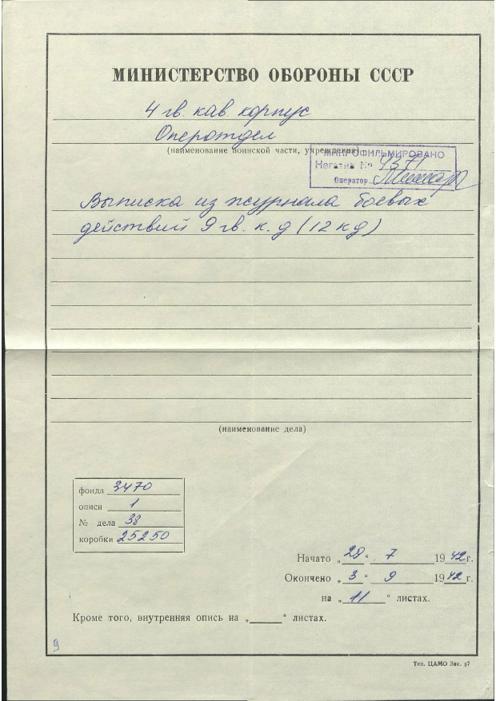 МИНИСТЕРСТВО ОБОРОНЫ СССР
4 гв. кав корпус
Оперотдел
(наименование воинской части, учреждения)
МИКРОФИЛЬМИРОВАНО
Негатив № 4571
Оператор
Выписка из журнала боевых
действий 9 гв. к. д (12 кд)
(наименование дела)
фонда 3470
описи 1
№ дела 38
коробки 25250
Начато „29“ 7 1942 г.
Окончено „3“ 9 1942 г.
на „11“ листах.
Кроме того, внутренняя опись на „ “ листах.
9
Тип. ЦАМО Зак. 57